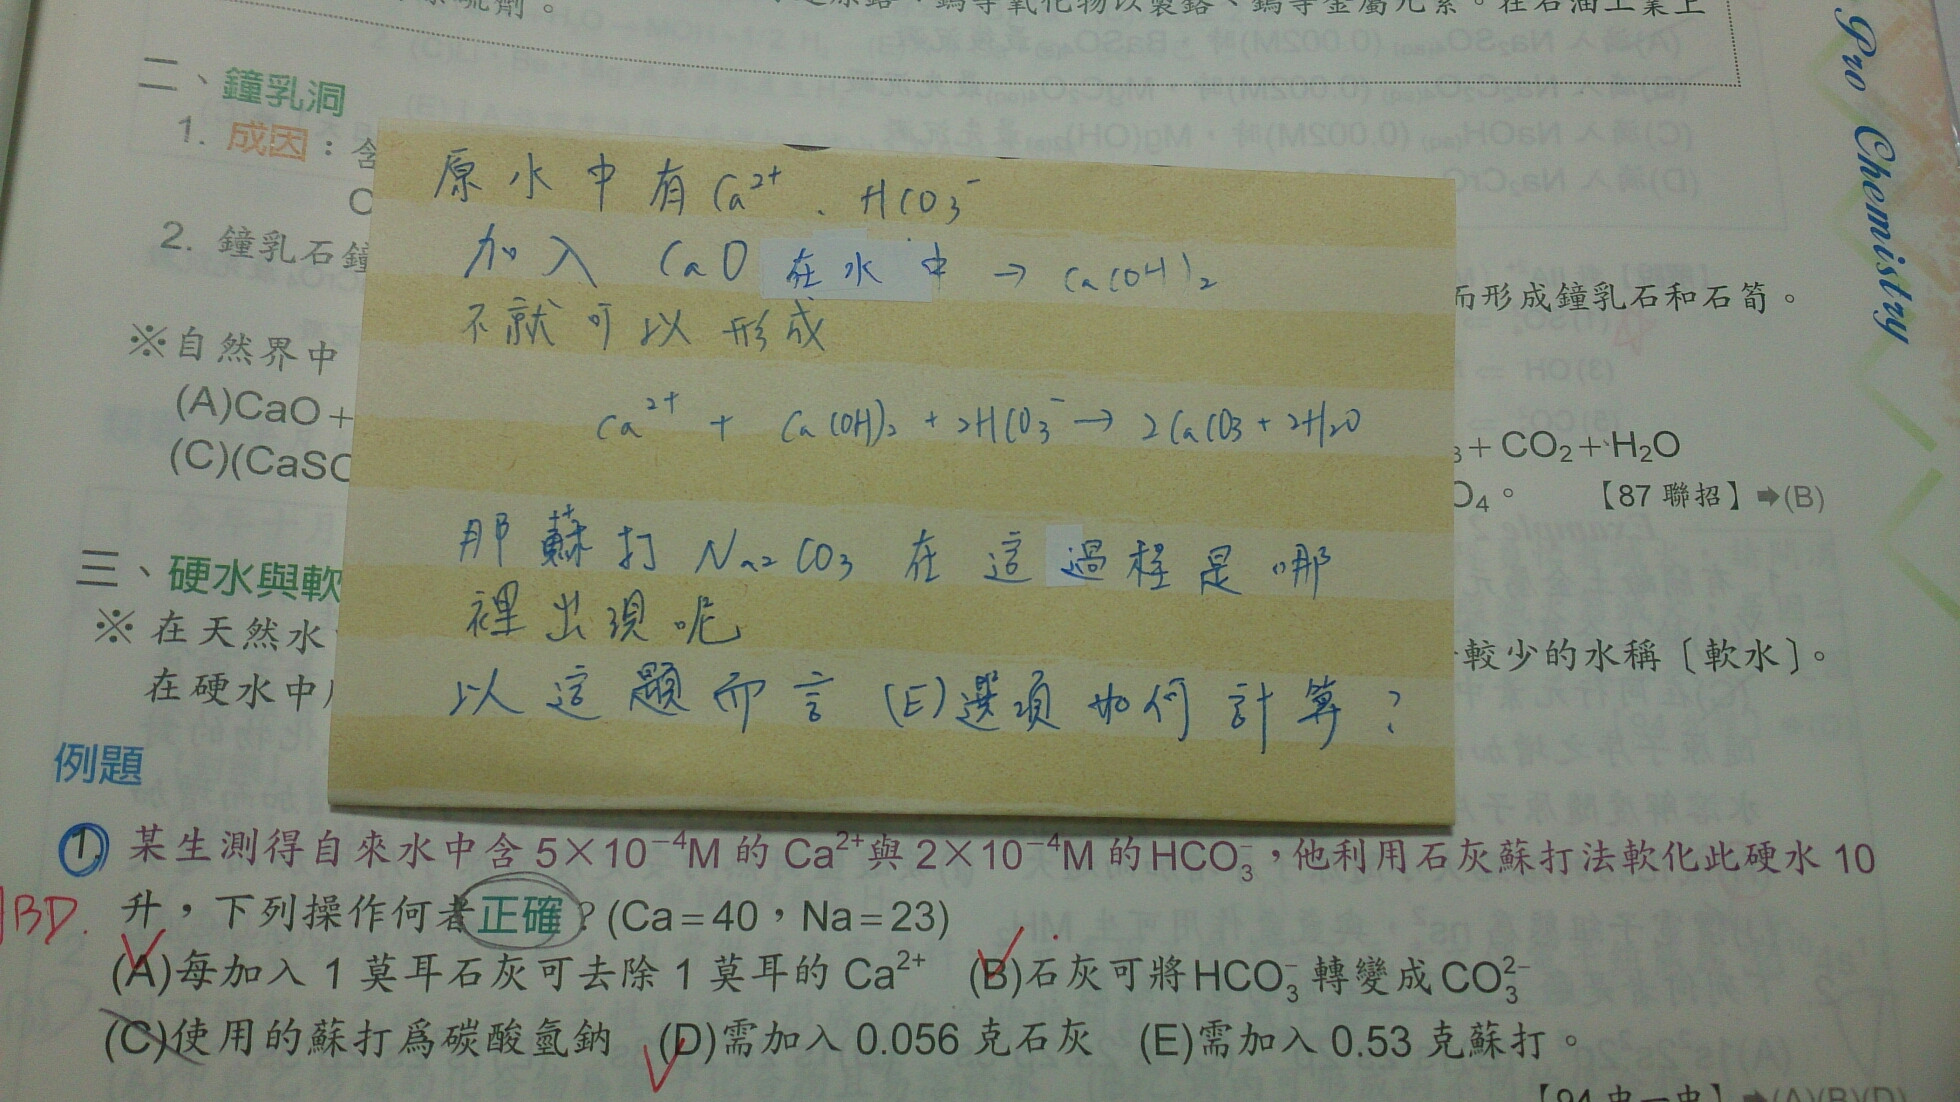 二、鐘乳洞
1. 成因：含
2. 鐘乳石鐘
而形成鐘乳石和石筍。
※自然界中
(A)CaO＋
(C)(CaSO
₃＋CO₂＋H₂O
O₄。 【87 聯招】➡(B)
三、硬水與軟
※ 在天然水
較少的水稱〔軟水〕。
在硬水中
Pro Chemistry
原水中有Ca²⁺、HCO₃⁻
加入 CaO 在水中 → Ca(OH)₂
不就可以形成
Ca²⁺ + Ca(OH)₂ + 2HCO₃⁻ → 2CaCO₃ + 2H₂O
那蘇打 Na₂CO₃ 在這過程是哪
裡出現呢
以這題而言 (E)選項如何計算？
例題
1. 某生測得自來水中含 5×10⁻⁴M 的 Ca²⁺與 2×10⁻⁴M 的HCO₃⁻，他利用石灰蘇打法軟化此硬水 10
升，下列操作何者正確？(Ca＝40，Na＝23)
ABD.
(A)每加入 1 莫耳石灰可去除 1 莫耳的 Ca²⁺ (B)石灰可將HCO₃⁻轉變成CO₃²⁻
(C)使用的蘇打爲碳酸氫鈉 (D)需加入 0.056 克石灰 (E)需加入 0.53 克蘇打。
【94 中一中】➡(A)(B)(D)